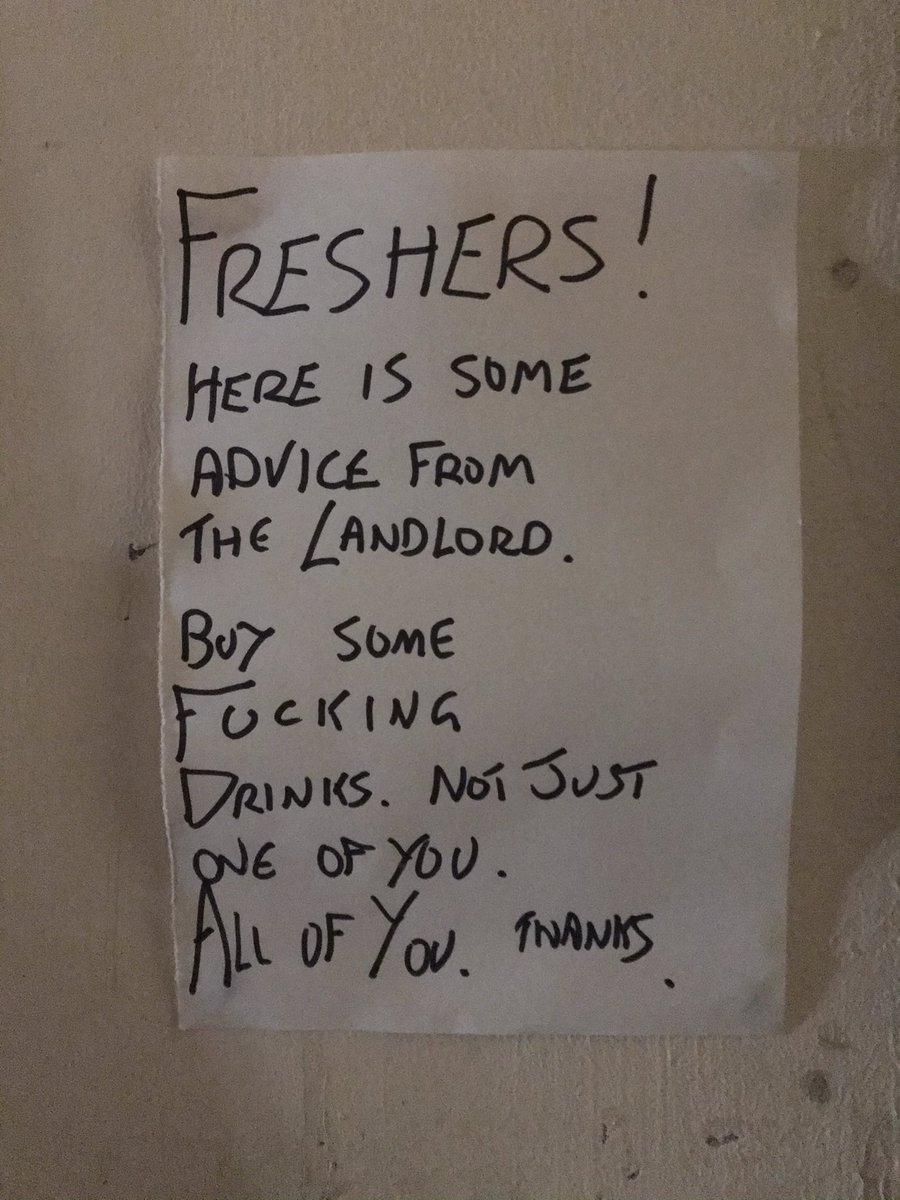 FRESHERS!
HERE IS SOME
ADVICE FROM
THE LANDLORD.
BUY SOME
FUCKING
DRINKS. NOT JUST
ONE OF YOU.
ALL OF YOU. THANKS.